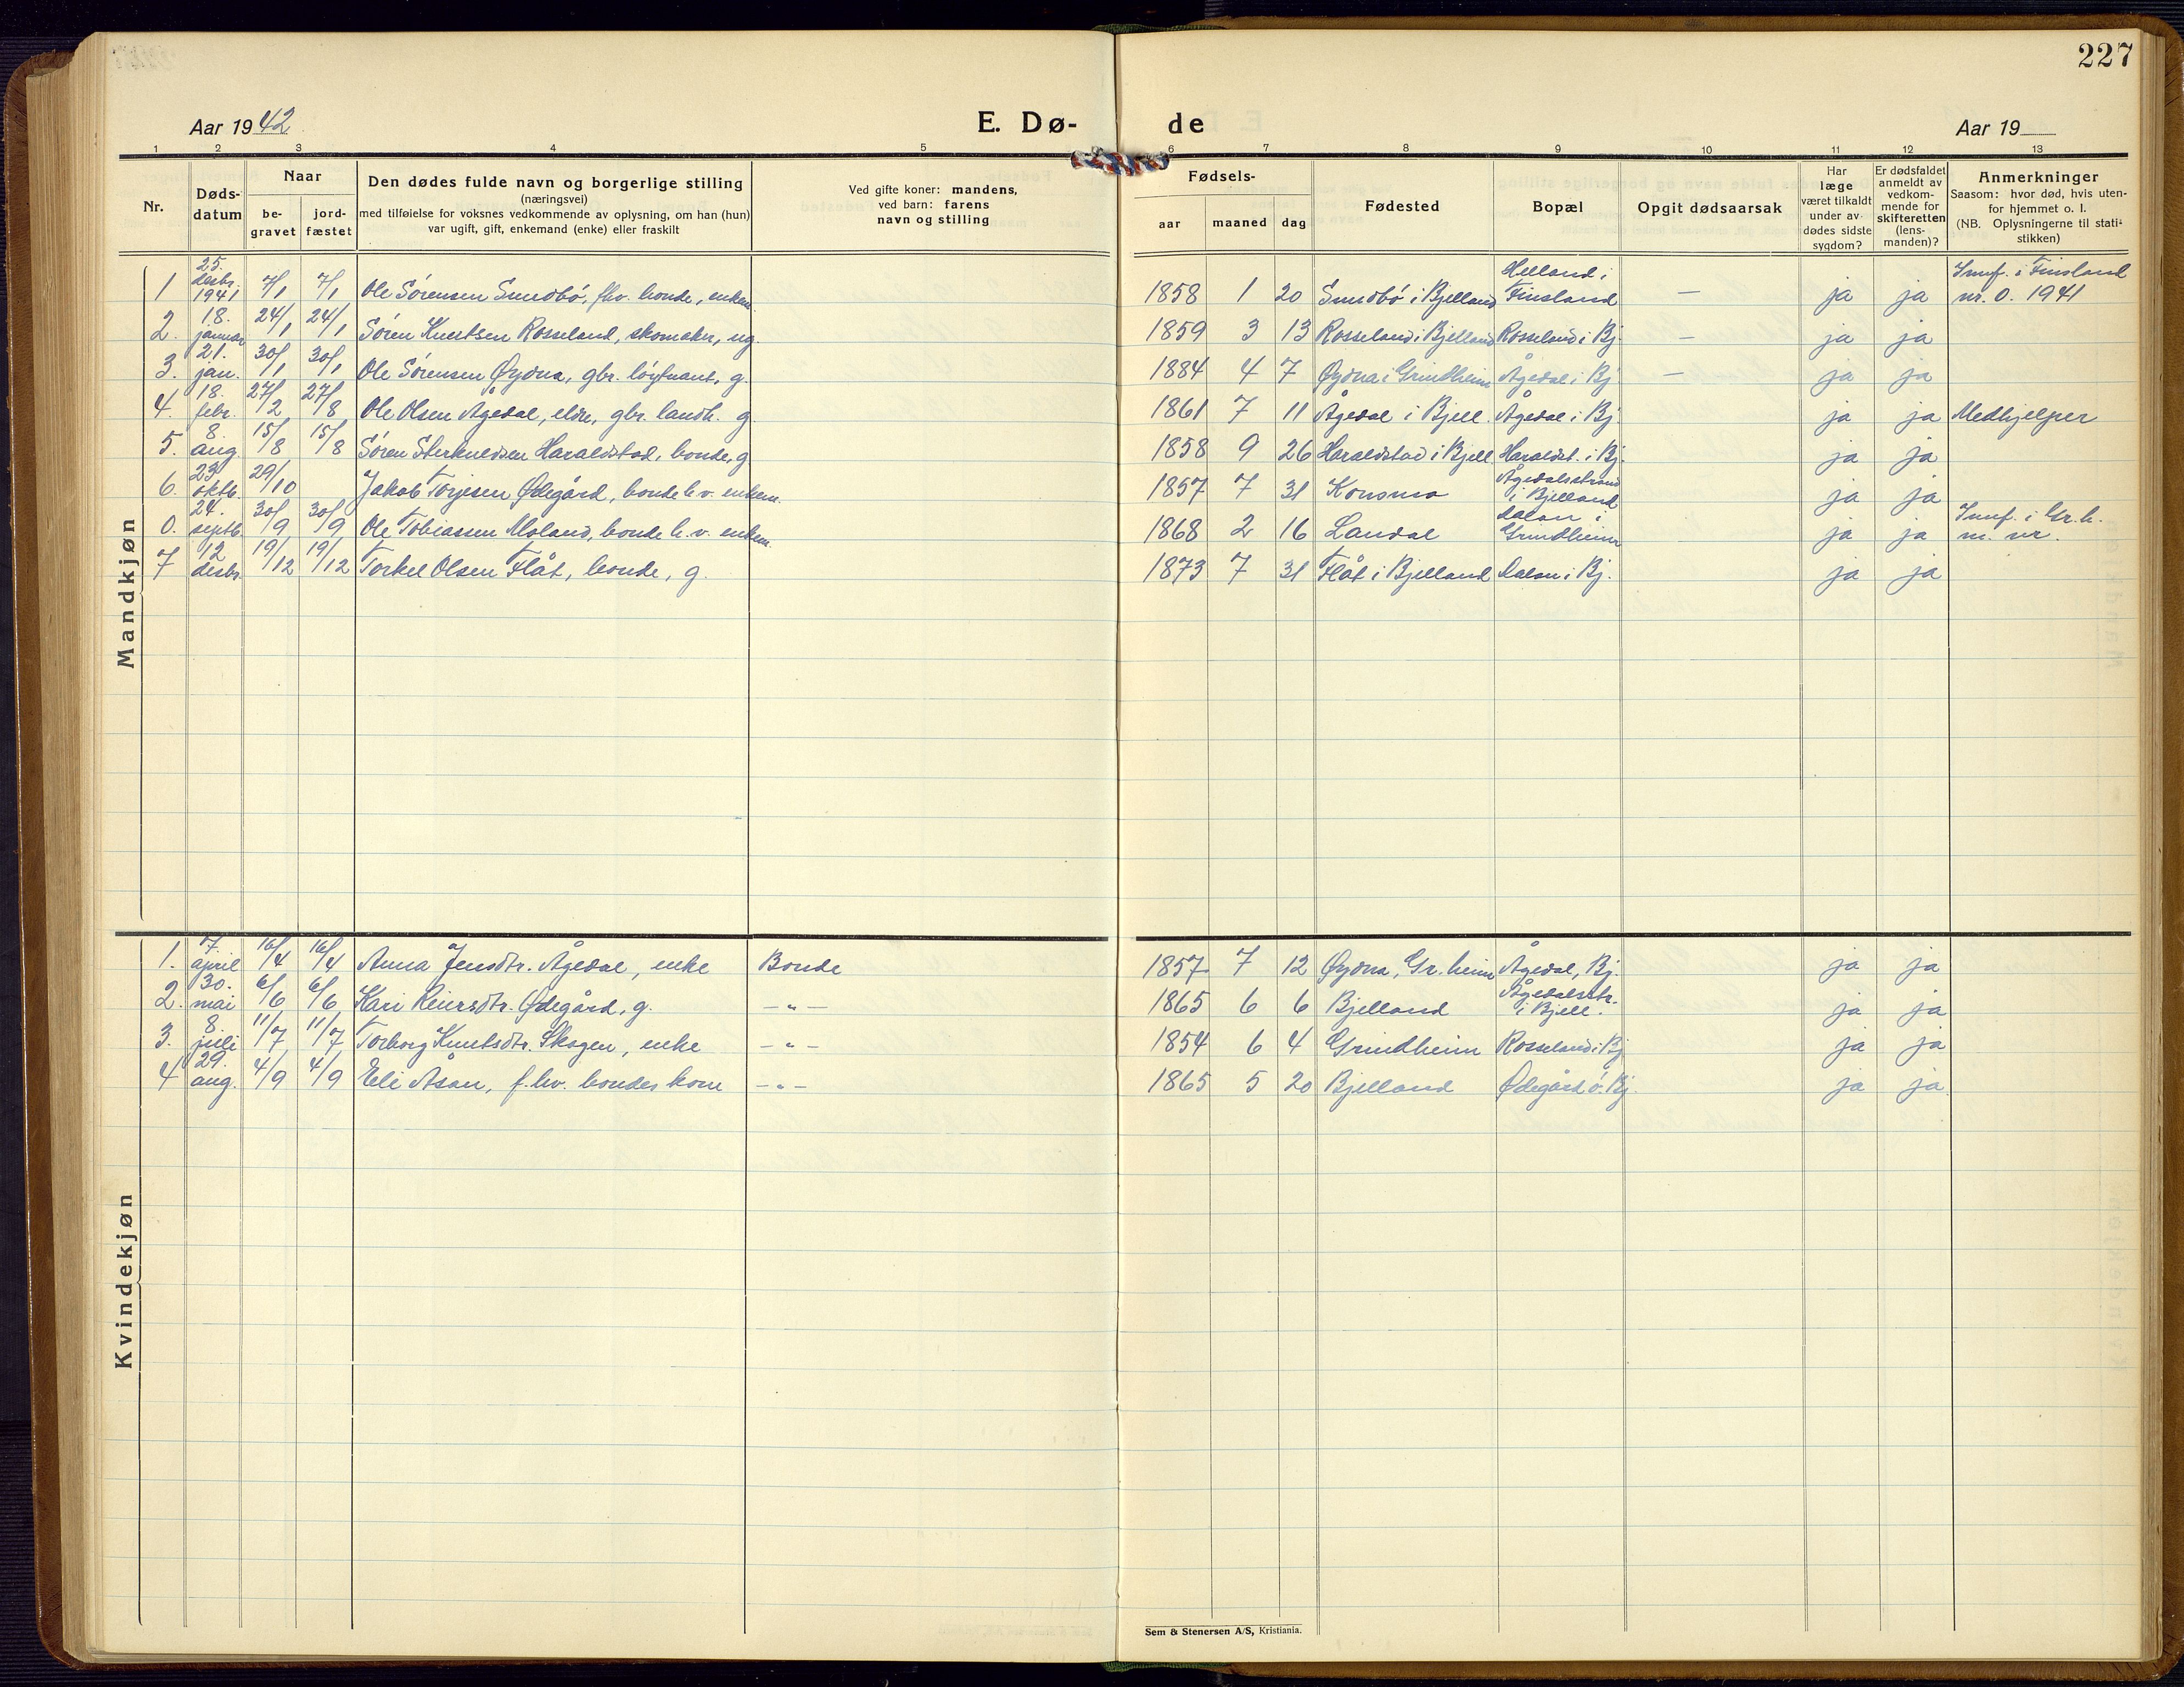 227
Aar 1942
E. Dø-
de
Aar 19
1 2 3 4 5 6 7 8 9 10 11 12 13
Nr.
Døds-
datum
Naar
be-
gravet
jord-
fæstet
Den dødes fulde navn og borgerlige stilling
(næringsvei)
med tilføielse for voksnes vedkommende av oplysning, om han (hun)
var ugift, gift, enkemand (enke) eller fraskilt
Ved gifte koner: mandens,
ved barn: farens
navn og stilling
Fødsels-
aar maaned dag
Fødested
Bopæl
Opgit dødsaarsak
Har
læge
været tilkaldt
under av-
dødes sidste
sygdom?
Er dødsfaldet
anmeldt av
vedkom-
mende for
skifteretten
(lens-
manden)?
Anmerkninger
Saasom: hvor død, hvis uten-
for hjemmet o. l.
(NB. Oplysningerne til stati-
stikken)
Mandkjøn
1 25. desbr. 1941 7/1 7/1 Ole Sörensen Sundbö, fhv. bonde, enkem. 1858 1 20 Sundbö i Bjelland Helland i Finsland — ja ja Innf. i Finsland nr. 0. 1941
2. 18. januar 24/1 24/1 Sören Knutsen Rosseland, skomaker, ug. 1859 3 13 Rosseland i Bjelland Rosseland i Bj. — ja ja
3. 21. jan. 30/1 30/1 Ole Sörensen Øydna, gbr. löytnant, g. 1884 4 7 Øydna i Grindheim Ågedal i Bj — ja ja
4. 18. febr. 27/2 27/8 Ole Olsen Ågedal, eldre, gbr. landh. g. 1861 7 11 Ågedal i Bjell. Ågedal i Bj. ja ja Medhjelper
5. 8. aug. 15/8 15/8 Sören Sterkuldsen Haraldstad, bonde, g 1858 9 26 Haraldstad i Bjell. Haraldst. i Bj. ja ja
6. 23. oktb. 29/10 Jakob Torjesen Ødegård, bonde h.v. enkem. 1857 7 31 Konsmo Ågedalsstrand i Bjelland ja ja
0. 24. septb. 30/9 30/9 Ole Tobiassen Moland, bonde h.v. enkem. 1868 2 16 Landal Dalan i Grindheim ja ja Innf. i Gr.h. m. nr.
7 12 desbr. 19/12 19/12 Torkel Olsen Flåt, bonde, g. 1873 7 31 Flåt i Bjelland Dalan i Bj. ja ja
Kvindekjøn
1. 7. april 16/4 16/4 Anna Jensdtr. Ågedal, enke Bonde 1857 7 12 Øydna, Gr.heim Ågedal, Bj. ja ja
2. 30. mai 6/6 6/6 Kari Reiersdtr. Ødegård, g. —„— 1865 6 6 Bjelland Ågedalsstr. i Bjell. ja ja
3. 8. juli 11/7 11/7 Torborg Knutsdtr. Skogen, enke —„— 1854 6 4 Grindheim Rosseland i Bj ja ja
4 29. aug. 4/9 4/9 Eli Åsan, f.hv. bondes kone —„— 1865 5 20 Bjelland Ødegård ö. Bj ja ja
Sem & Stenersen A/S, Kristiania.